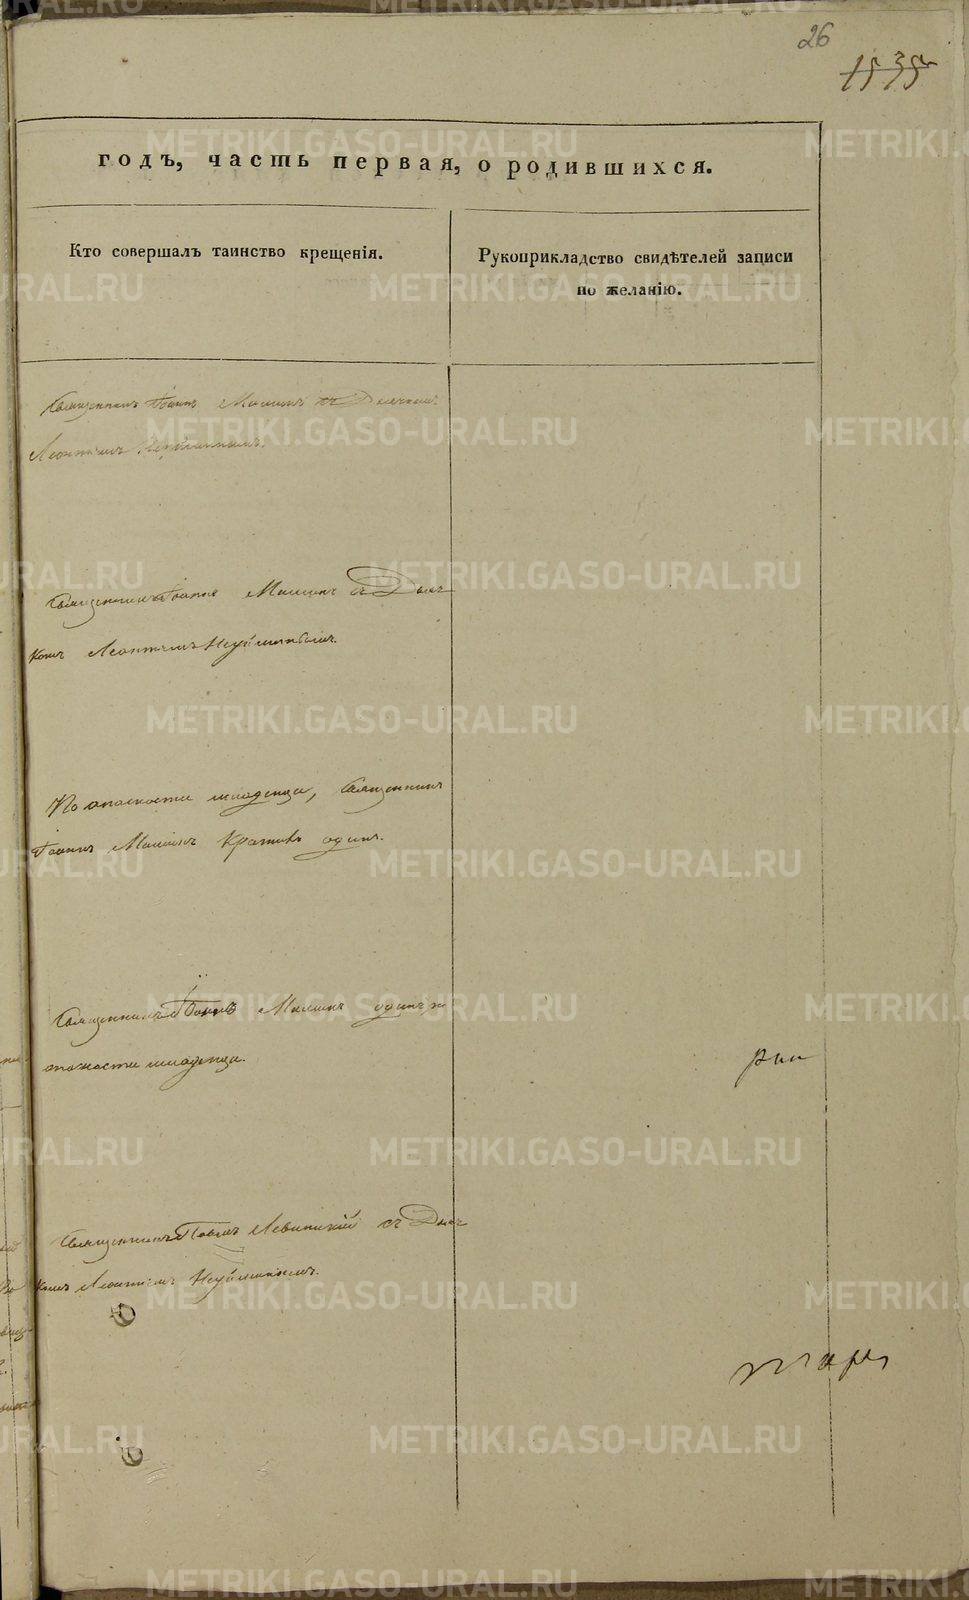 26
1535
годъ, часть первая, о родившихся.
Кто совершалъ таинство крещенія.
Рукоприкладство свидѣтелей записи
по желанію.
Священникъ Іоаннъ съ Дьячкомъ
Леонтіемъ Неуйминымъ.
Священникъ Іоаннъ съ Дьяч
комъ Леонтіемъ Неуйминымъ.
По опасности младенца, Священникъ
Іоаннъ одинъ.
Священникъ Іоаннъ одинъ по
опасности младенца.
Священникъ Павелъ Левитскій съ Дьяч
комъ Леонтіемъ Неуйминымъ.
METRIKI.GASO-URAL.RU